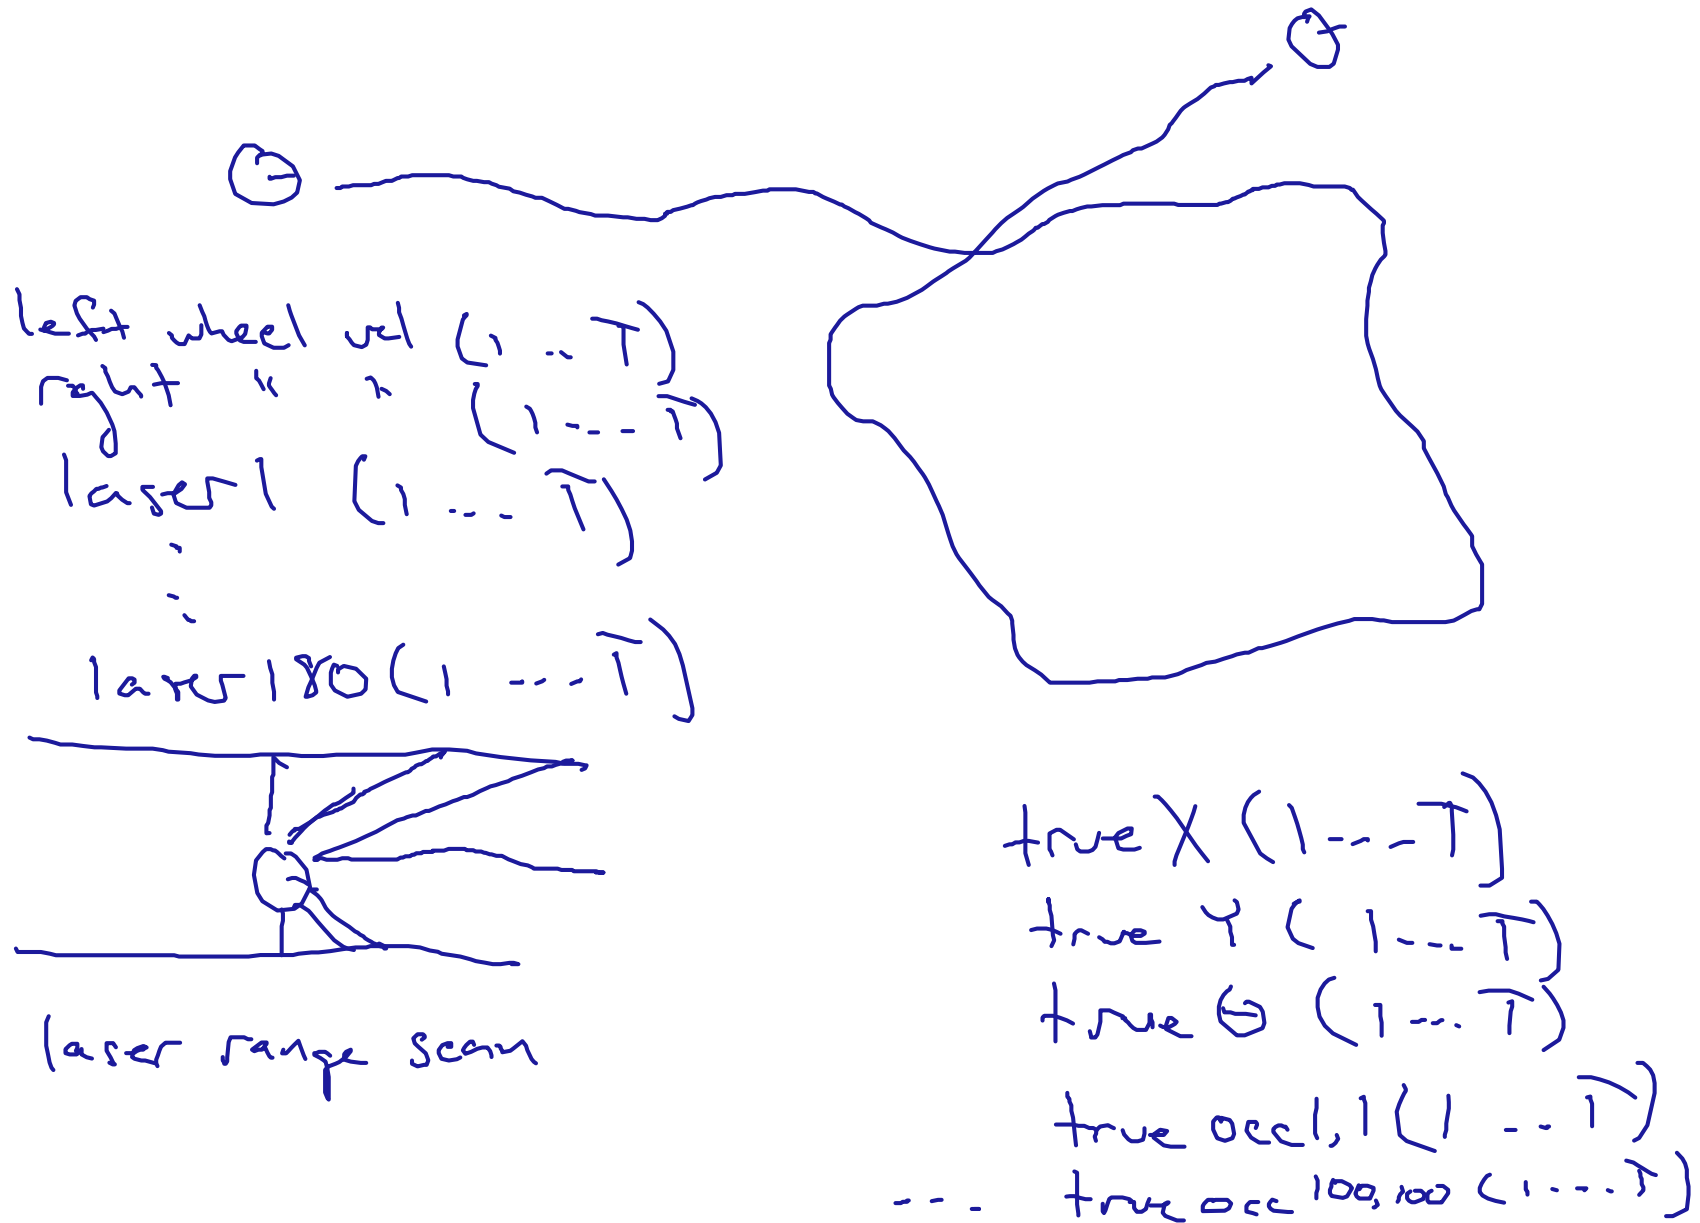 left wheel vel (1 ... T)
right " " (1 .... T)
laser1 (1 .... T)
laser180 (1 .... T)
laser range scan
true X (1 ....T)
true Y (1.... T)
true Θ (1 .... T)
true occ1,1 (1 ... T)
... true occ 100,100 (1 .... T)